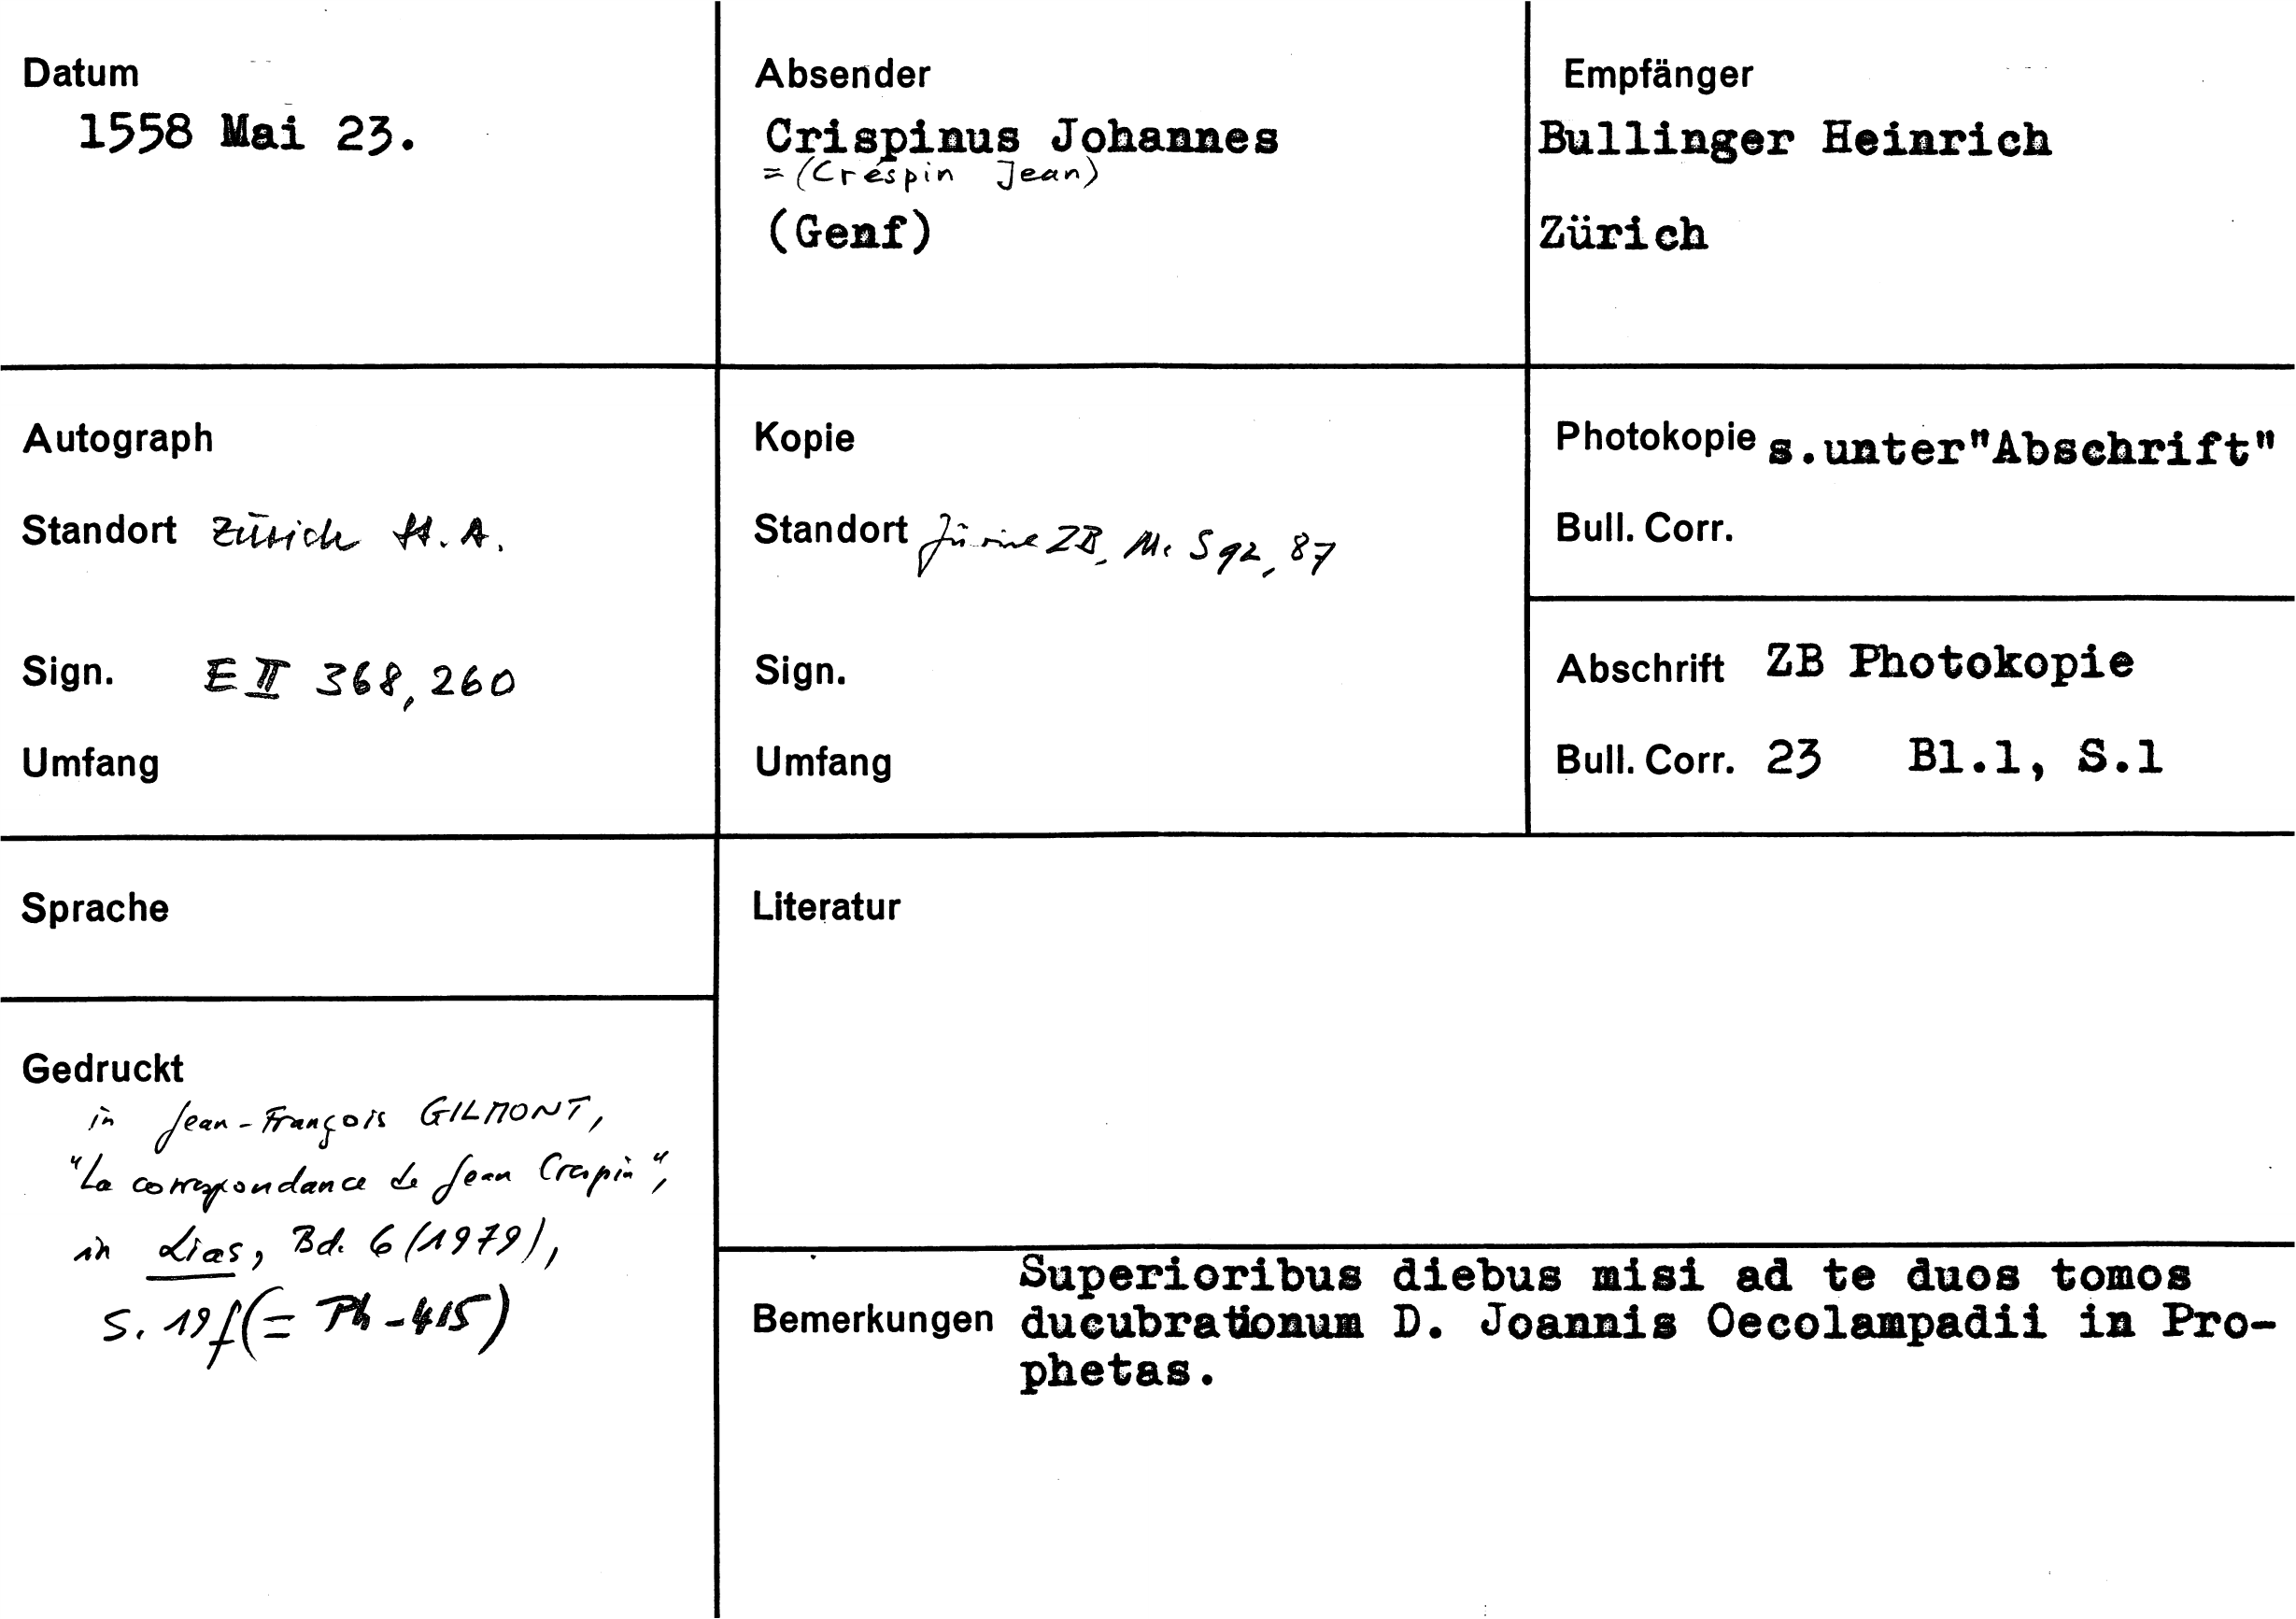 Datum
1558 Mai 23.
Absender
Crispinus Johannes
=(Créspin Jean)
(Genf)
Empfänger
Bullinger Heinrich
Zürich
Autograph
Standort Zürich St. A.
Sign. E II 368, 260
Umfang
Kopie
Standort ZB, Ms S 92, 87
Sign.
Umfang
Photokopie s.unter"Abschrift"
Bull. Corr.
Abschrift ZB Photokopie
Bull. Corr. 23 Bl.1, S.1
Sprache
Literatur
Gedruckt
in Jean-François GILMONT,
"La correspondance de Jean Crespin",
in Lias, Bd. 6 (1979),
S. 19f (= Ph-415)
Bemerkungen Superioribus diebus misi ad te duos tomos
ducubrationum D. Joannis Oecolampadii in Pro-
phetas.